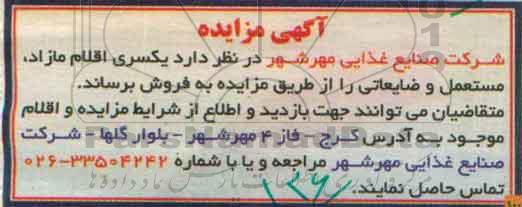 آگهی مزایده
شرکت صنایع غذایی مهرشهر در نظر دارد یکسری اقلام مازاد،
مستعمل و ضایعاتی را از طریق مزایده به فروش برساند.
متقاضیان می توانند جهت بازدید و اطلاع از شرایط مزایده و اقلام
موجود به آدرس کرج - فاز ۴ مهرشهر - بلوار گلها - شرکت
صنایع غذایی مهرشهر مراجعه و یا با شماره ۳۳۵۰۴۲۴۲-۰۲۶
تماس حاصل نمایند.